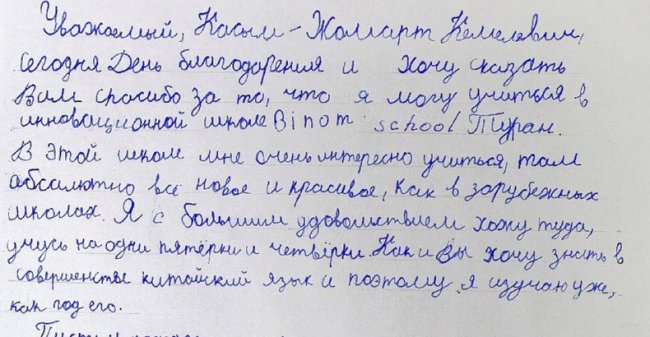 Уважаемый, Касым-Жомарт Кемелевич,
сегодня День благодарения и хочу сказать
Вам спасибо за то, что я могу учиться в
инновационной школе Binom school Туран.
В этой школе мне очень интересно учиться, там
абсалютно всё новое и красивое, как в зарубежных
школах. Я с большим удовольствием хожу туда,
учусь на одни пятёрки и четвёрки. Как и Вы хочу знать в
совершенстве китайский язык и поэтому я изучаю уже,
как год его.